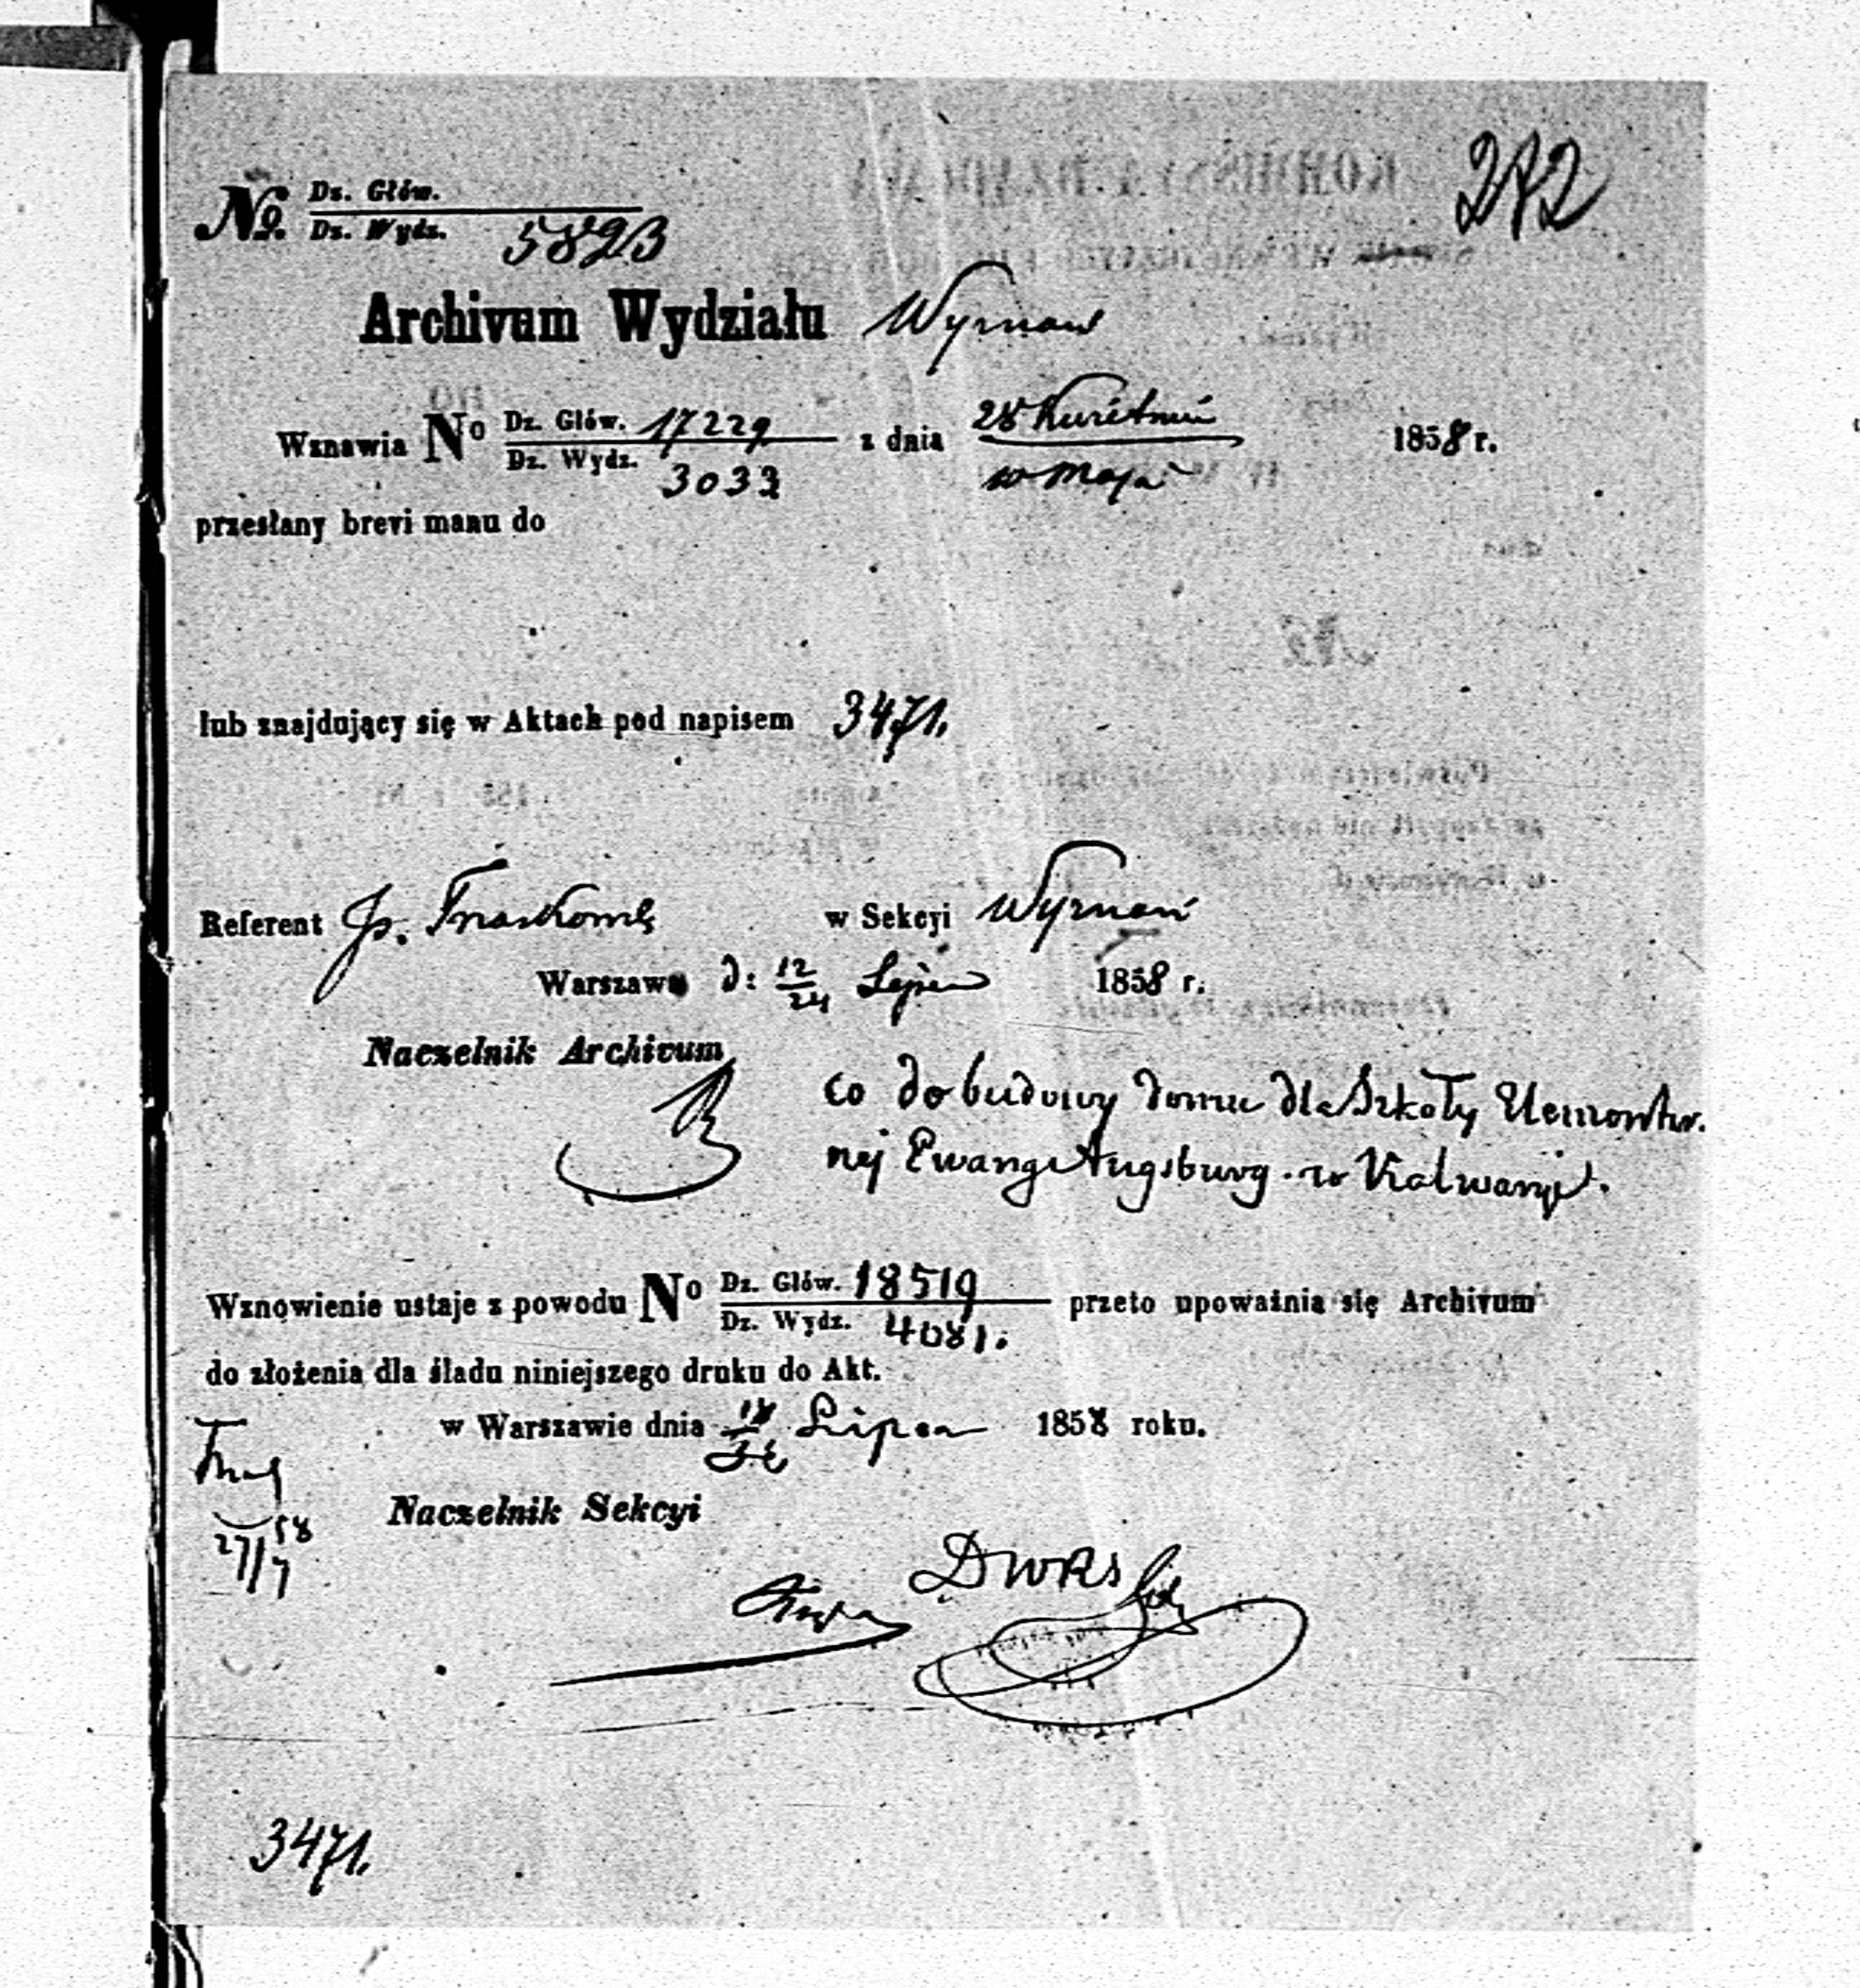 272
No. Dz. Głów.
Dz. Wydz. 5823
Archivum Wydziału Wyznań
Wznawia No Dz. Głów. 17229 z dnia 28 Kwietnia 1858 r.
Dz. Wydz. 3033 Maja
przesłany brevi manu do
lub znajdujący się w Aktach pod napisem 3471.
Referent w Sekcyi Wyznań
Warszawa d: 12/24 Lipca 1858 r.
Naczelnik Archivum
co do budowy domu dla Szkoły Elementar.
nej Ewang. Augsburg. w Kalwaryi.
Wznowienie ustaje z powodu No Dz. Głów. 18519 przeto upoważnia się Archivum
Dz. Wydz. 4081.
do złożenia dla śladu niniejszego druku do Akt.
w Warszawie dnia Lipca 1858 roku.
27/7 58
Naczelnik Sekcyi
3471.